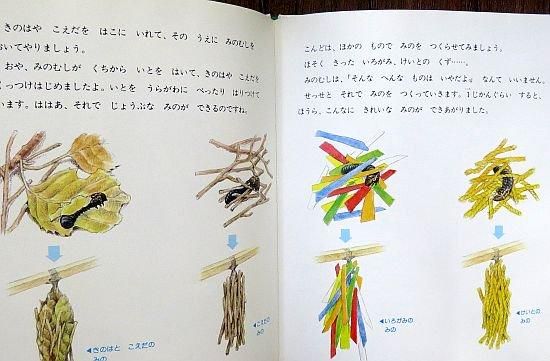 きのはや こえだを はこに いれて、その うえに みのむしを
おいてやりましょう。
おや、みのむしが くちから いとを はいて、きのはや こえだを
くっつけはじめましたよ。いとを うらがわに べったり はりつけて
います。ははあ、それで じょうぶな みのが できるのですね。
◀きのはと こえだの
みの
◀こえだの
みの
こんどは、ほかの もので みのを つくらせてみましょう。
ほそく きった いろがみ、けいとの くず……。
みのむしは、「そんな へんな ものは いやだよ。」なんて いいません。
せっせと それで みのを つくっていきます。1じかんぐらい すると、
ほうら、こんなに きれいな みのが できあがりました。
◀いろがみの
みの
◀けいとの
みの